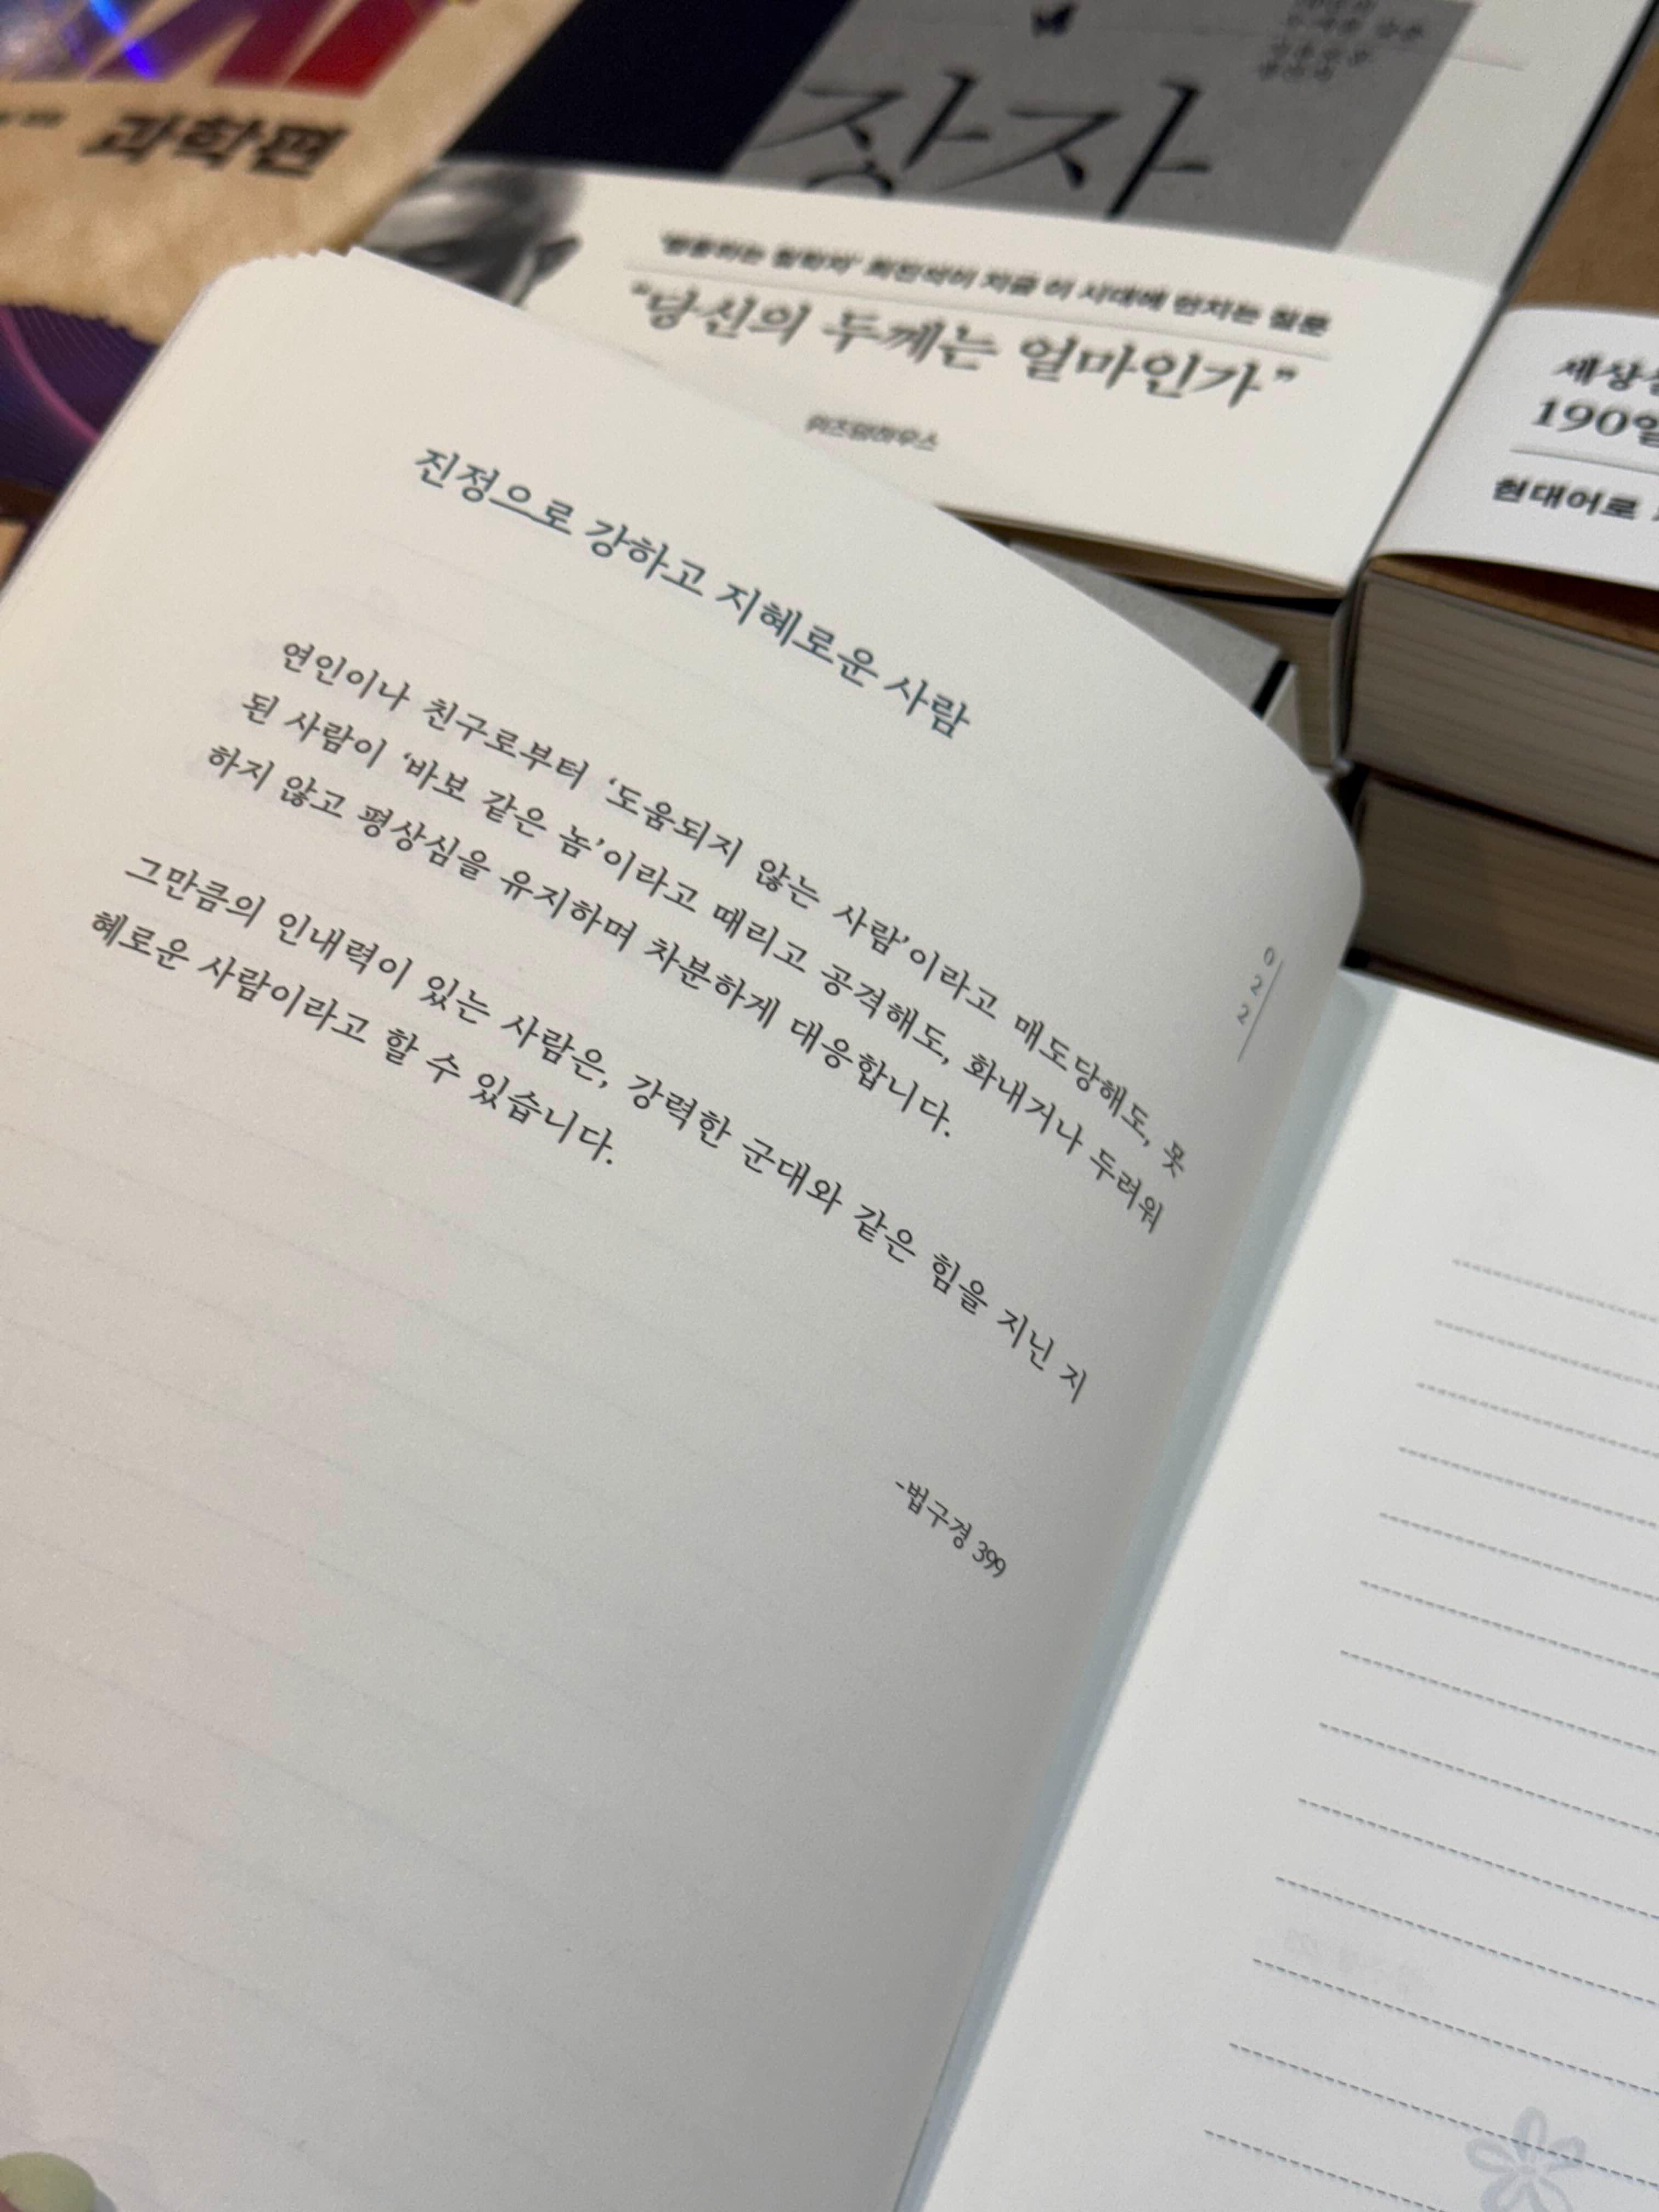 과학편
장자
"당신의 두께는 얼마인가"
위즈덤하우스
190일
현대어로
진정으로 강하고 지혜로운 사람
연인이나 친구로부터 '도움되지 않는 사람'이라고 매도당해도, 못
된 사람이 '바보 같은 놈'이라고 때리고 공격해도, 화내거나 두려워
하지 않고 평상심을 유지하며 차분하게 대응합니다.
그만큼의 인내력이 있는 사람은, 강력한 군대와 같은 힘을 지닌 지
혜로운 사람이라고 할 수 있습니다.
-법구경 399
022